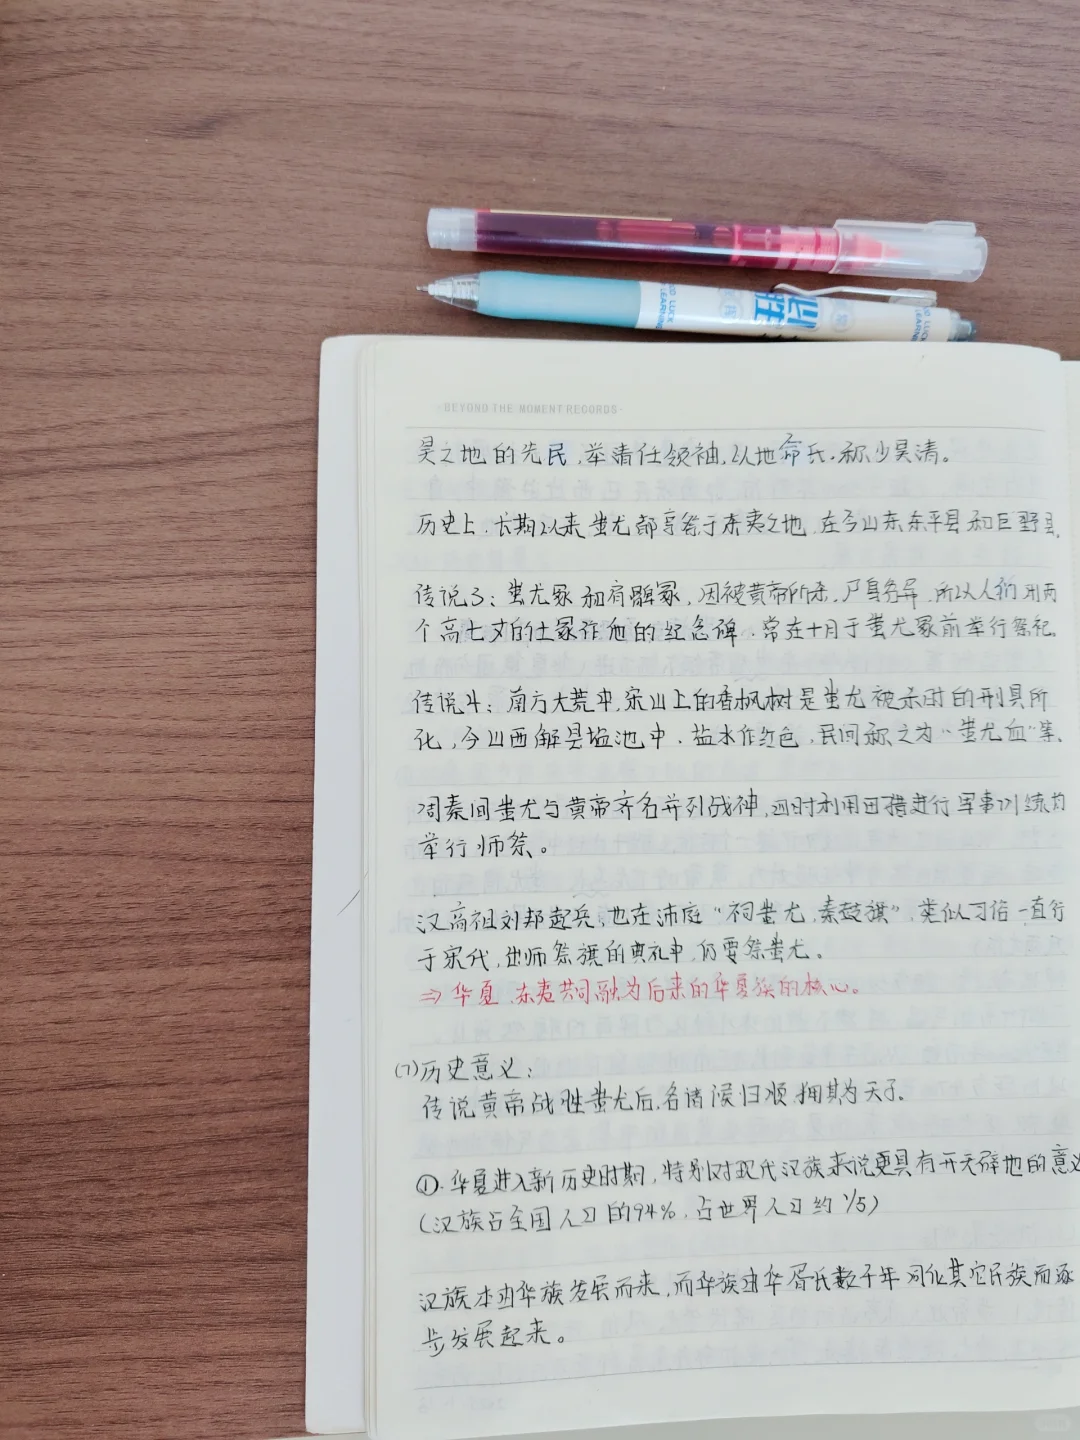 必胜
GOOD LUCK
LEARNING
·BEYOND THE MOMENT RECORDS·
昊之地的先民,举清任领袖,以地命氏,称少昊清。
历史上,长期以来蚩尤都享祭于东夷之地,在今山东东平县和巨野县.
传说3:蚩尤冢和肩髀冢,因被黄帝所杀,尸身各异,所以人们用两
个高七丈的土冢作他的纪念碑,常在十月于蚩尤冢前举行祭祀.
传说4:南方大荒中,宋山上的香枫树是蚩尤被杀时的刑具所
化,今山西解县盐池中,盐水作红色,民间称之为“蚩尤血”等.
周秦间蚩尤与黄帝齐名并列战神,四时利用田猎进行军事训练均
举行师祭。
汉高祖刘邦起兵,也在沛庭“祠蚩尤,衅鼓旗”,类似习俗一直行
于宋代,出师祭旗的典礼中,仍要祭蚩尤。
⇒华夏、东夷共同融为后来的华夏族的核心。
(7)历史意义:
传说黄帝战胜蚩尤后,各诸侯归顺,拥其为天子.
①.华夏进入新历史时期,特别对现代汉族来说更具有开天辟地的意义
(汉族占全国人口的94%,占世界人口约1/5)
汉族本由华族发展而来,而华族由华胥氏数千年同化其它民族而逐
步发展起来。